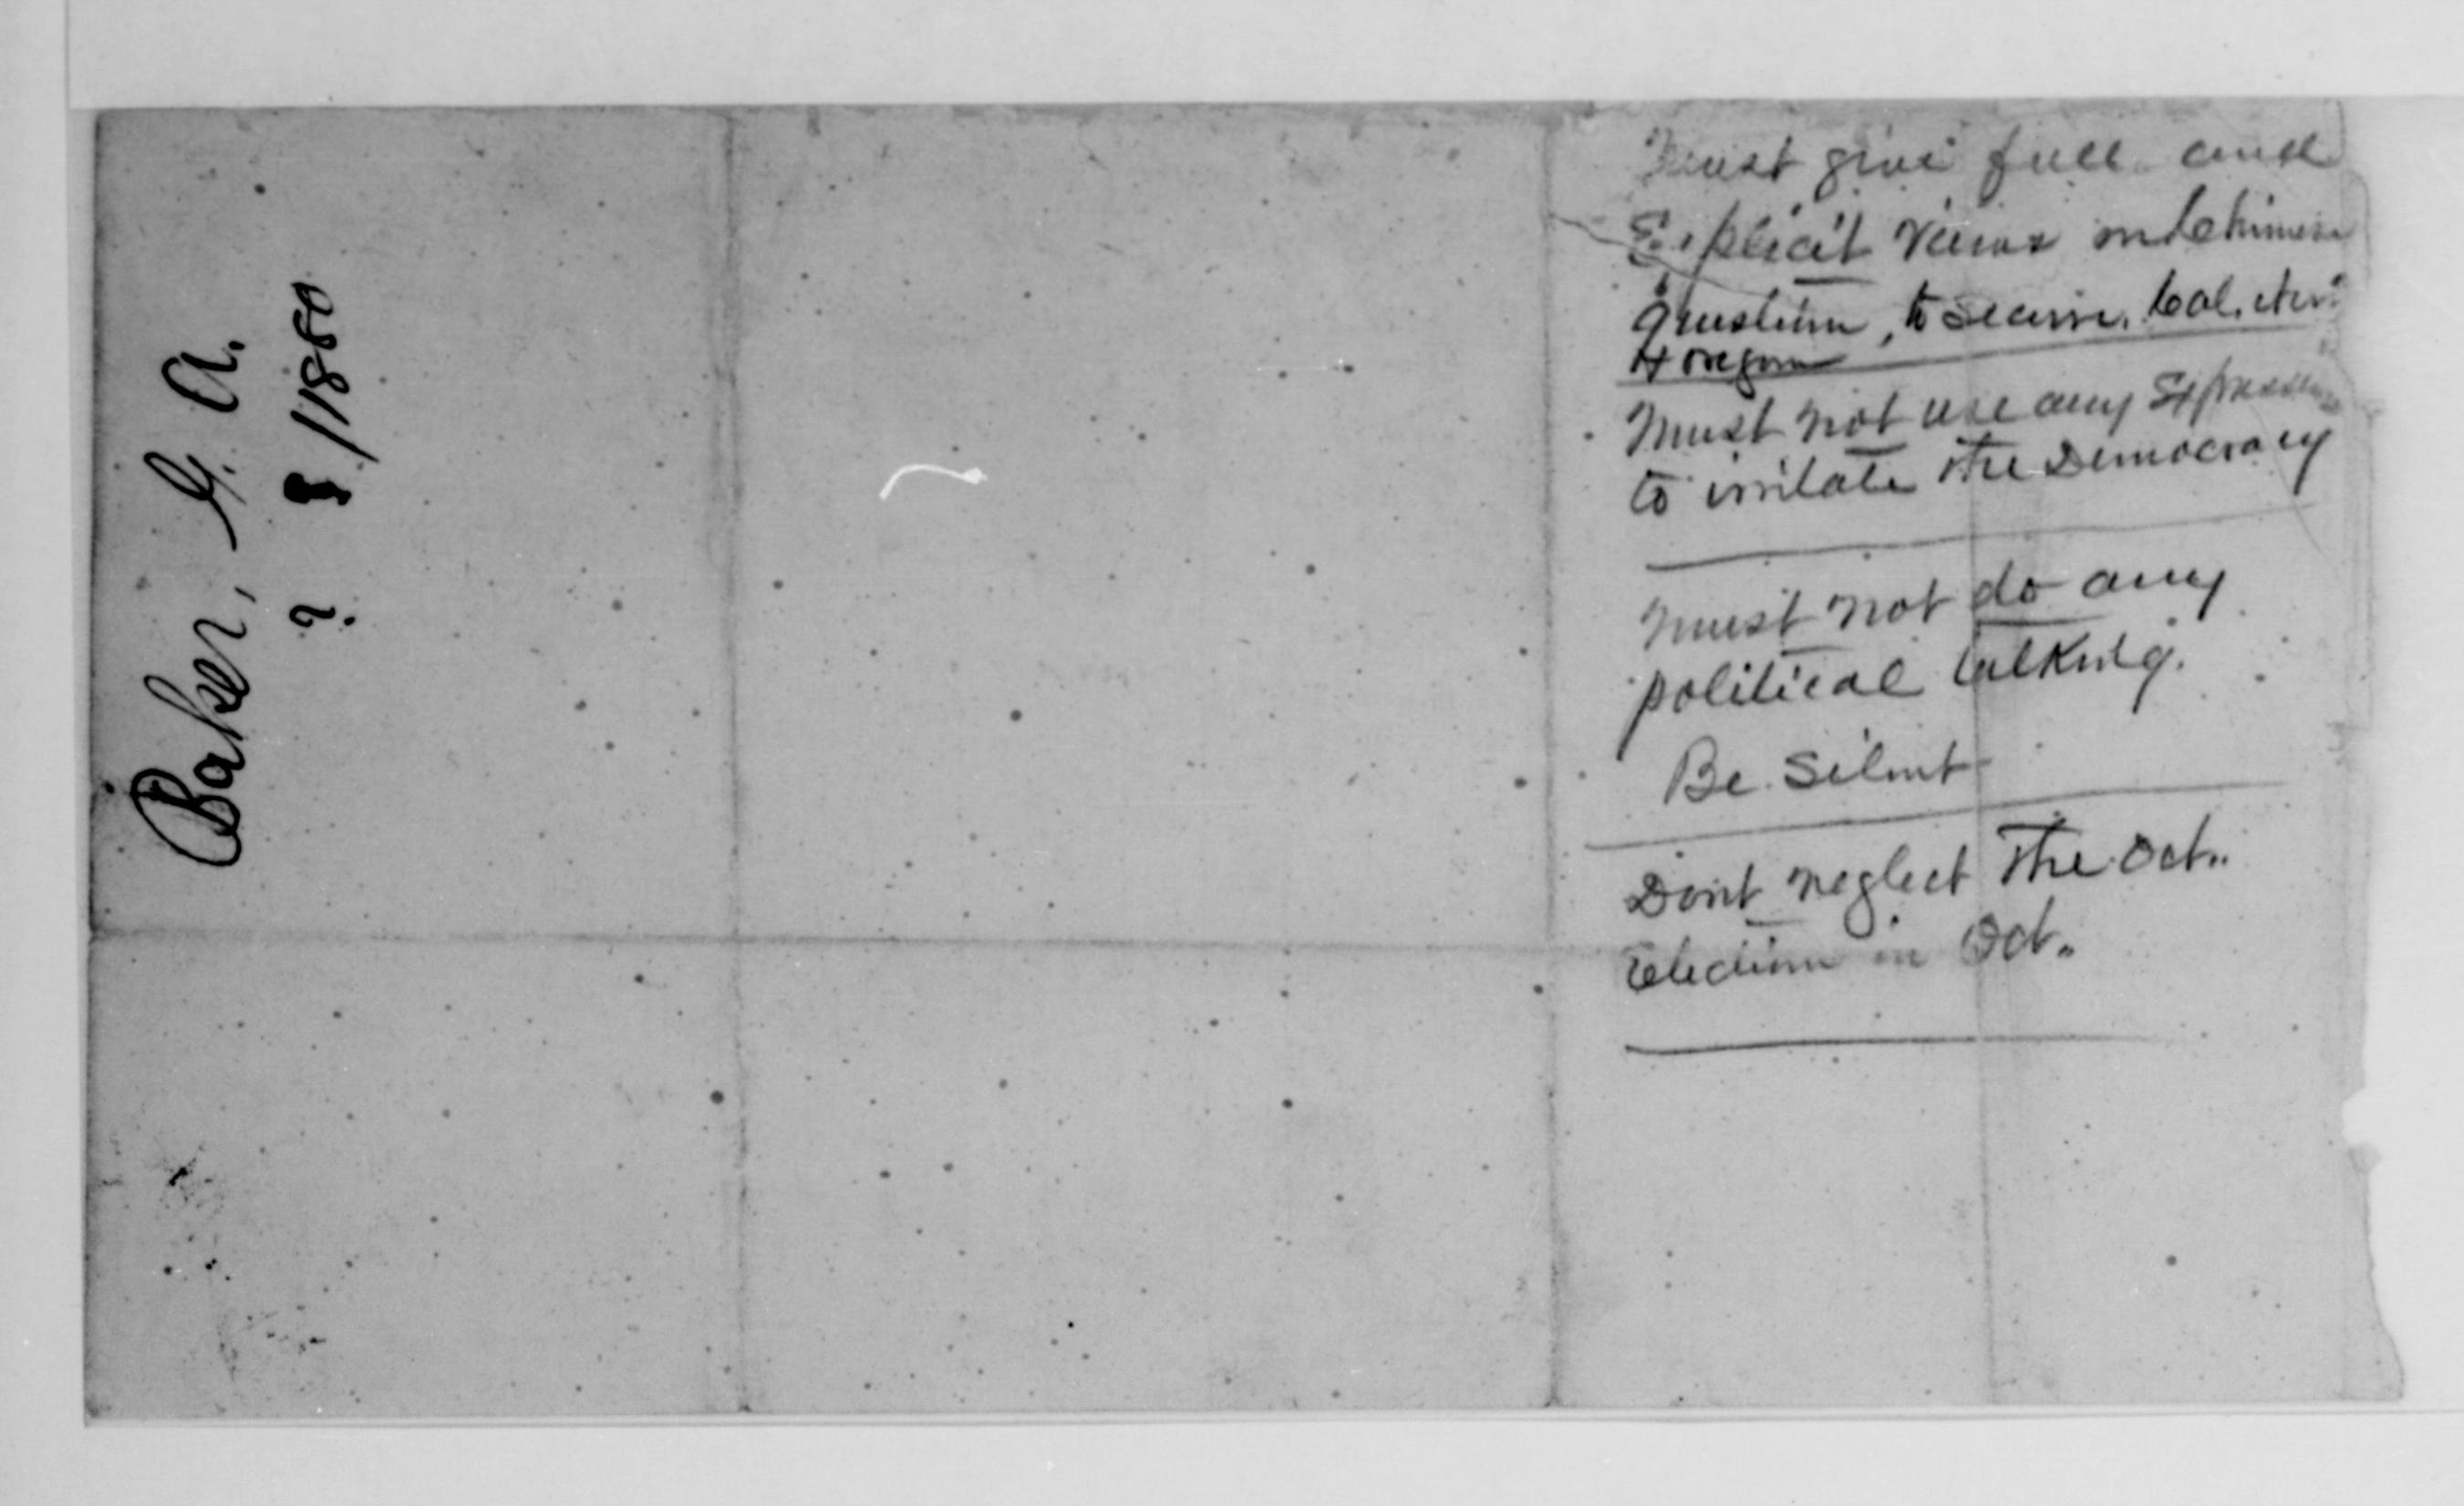 Baker, G. A.
? /1880
Must give full and
Explicit views on Chinese
question, to secure. Cal.
& oregon
Must not use any Expressions
to irritate the Democracy
Must not do any
political talking.
Be Silent
Dont neglect the Oct..
Election in Oct..